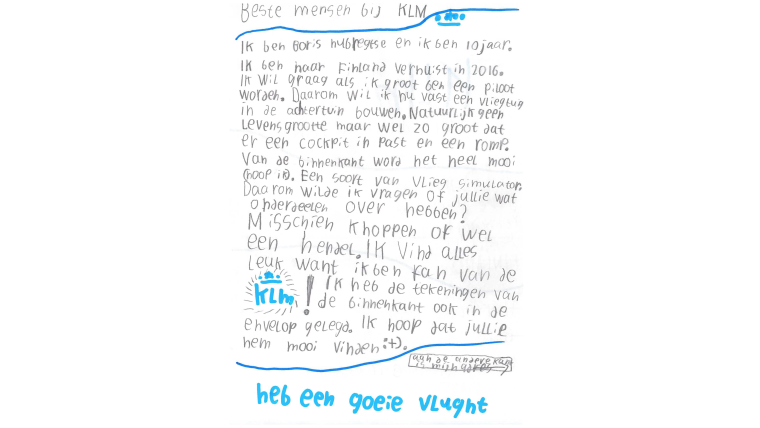 Beste mensen bij KLM
Ik ben Boris hubregtse en ik ben 10 jaar.
Ik ben naar Finland verhuist in 2016.
Ik wil graag als ik groot ben een piloot
worden. Daarom wil ik nu vast een vliegtug
in de achtertuin bouwen. Natuurlijk geen
levensgrootte maar wel zo groot dat
er een cockpit in past en een romp.
Van de binnenkant word het heel mooi
(hoop ik). Een soort van vlieg simulator.
Daarom wilde ik vragen of jullie wat
onderdeelen over hebben?
Misschien knoppen of wel
een hendel. Ik vind alles
leuk want ik ben fan van de
KLM! Ik heb de tekeningen van
de binnenkant ook in de
envelop gelegd. Ik hoop dat jullie
hem mooi vinden :+).
aan de andere kant
is mijn adres
heb een goeie vlught